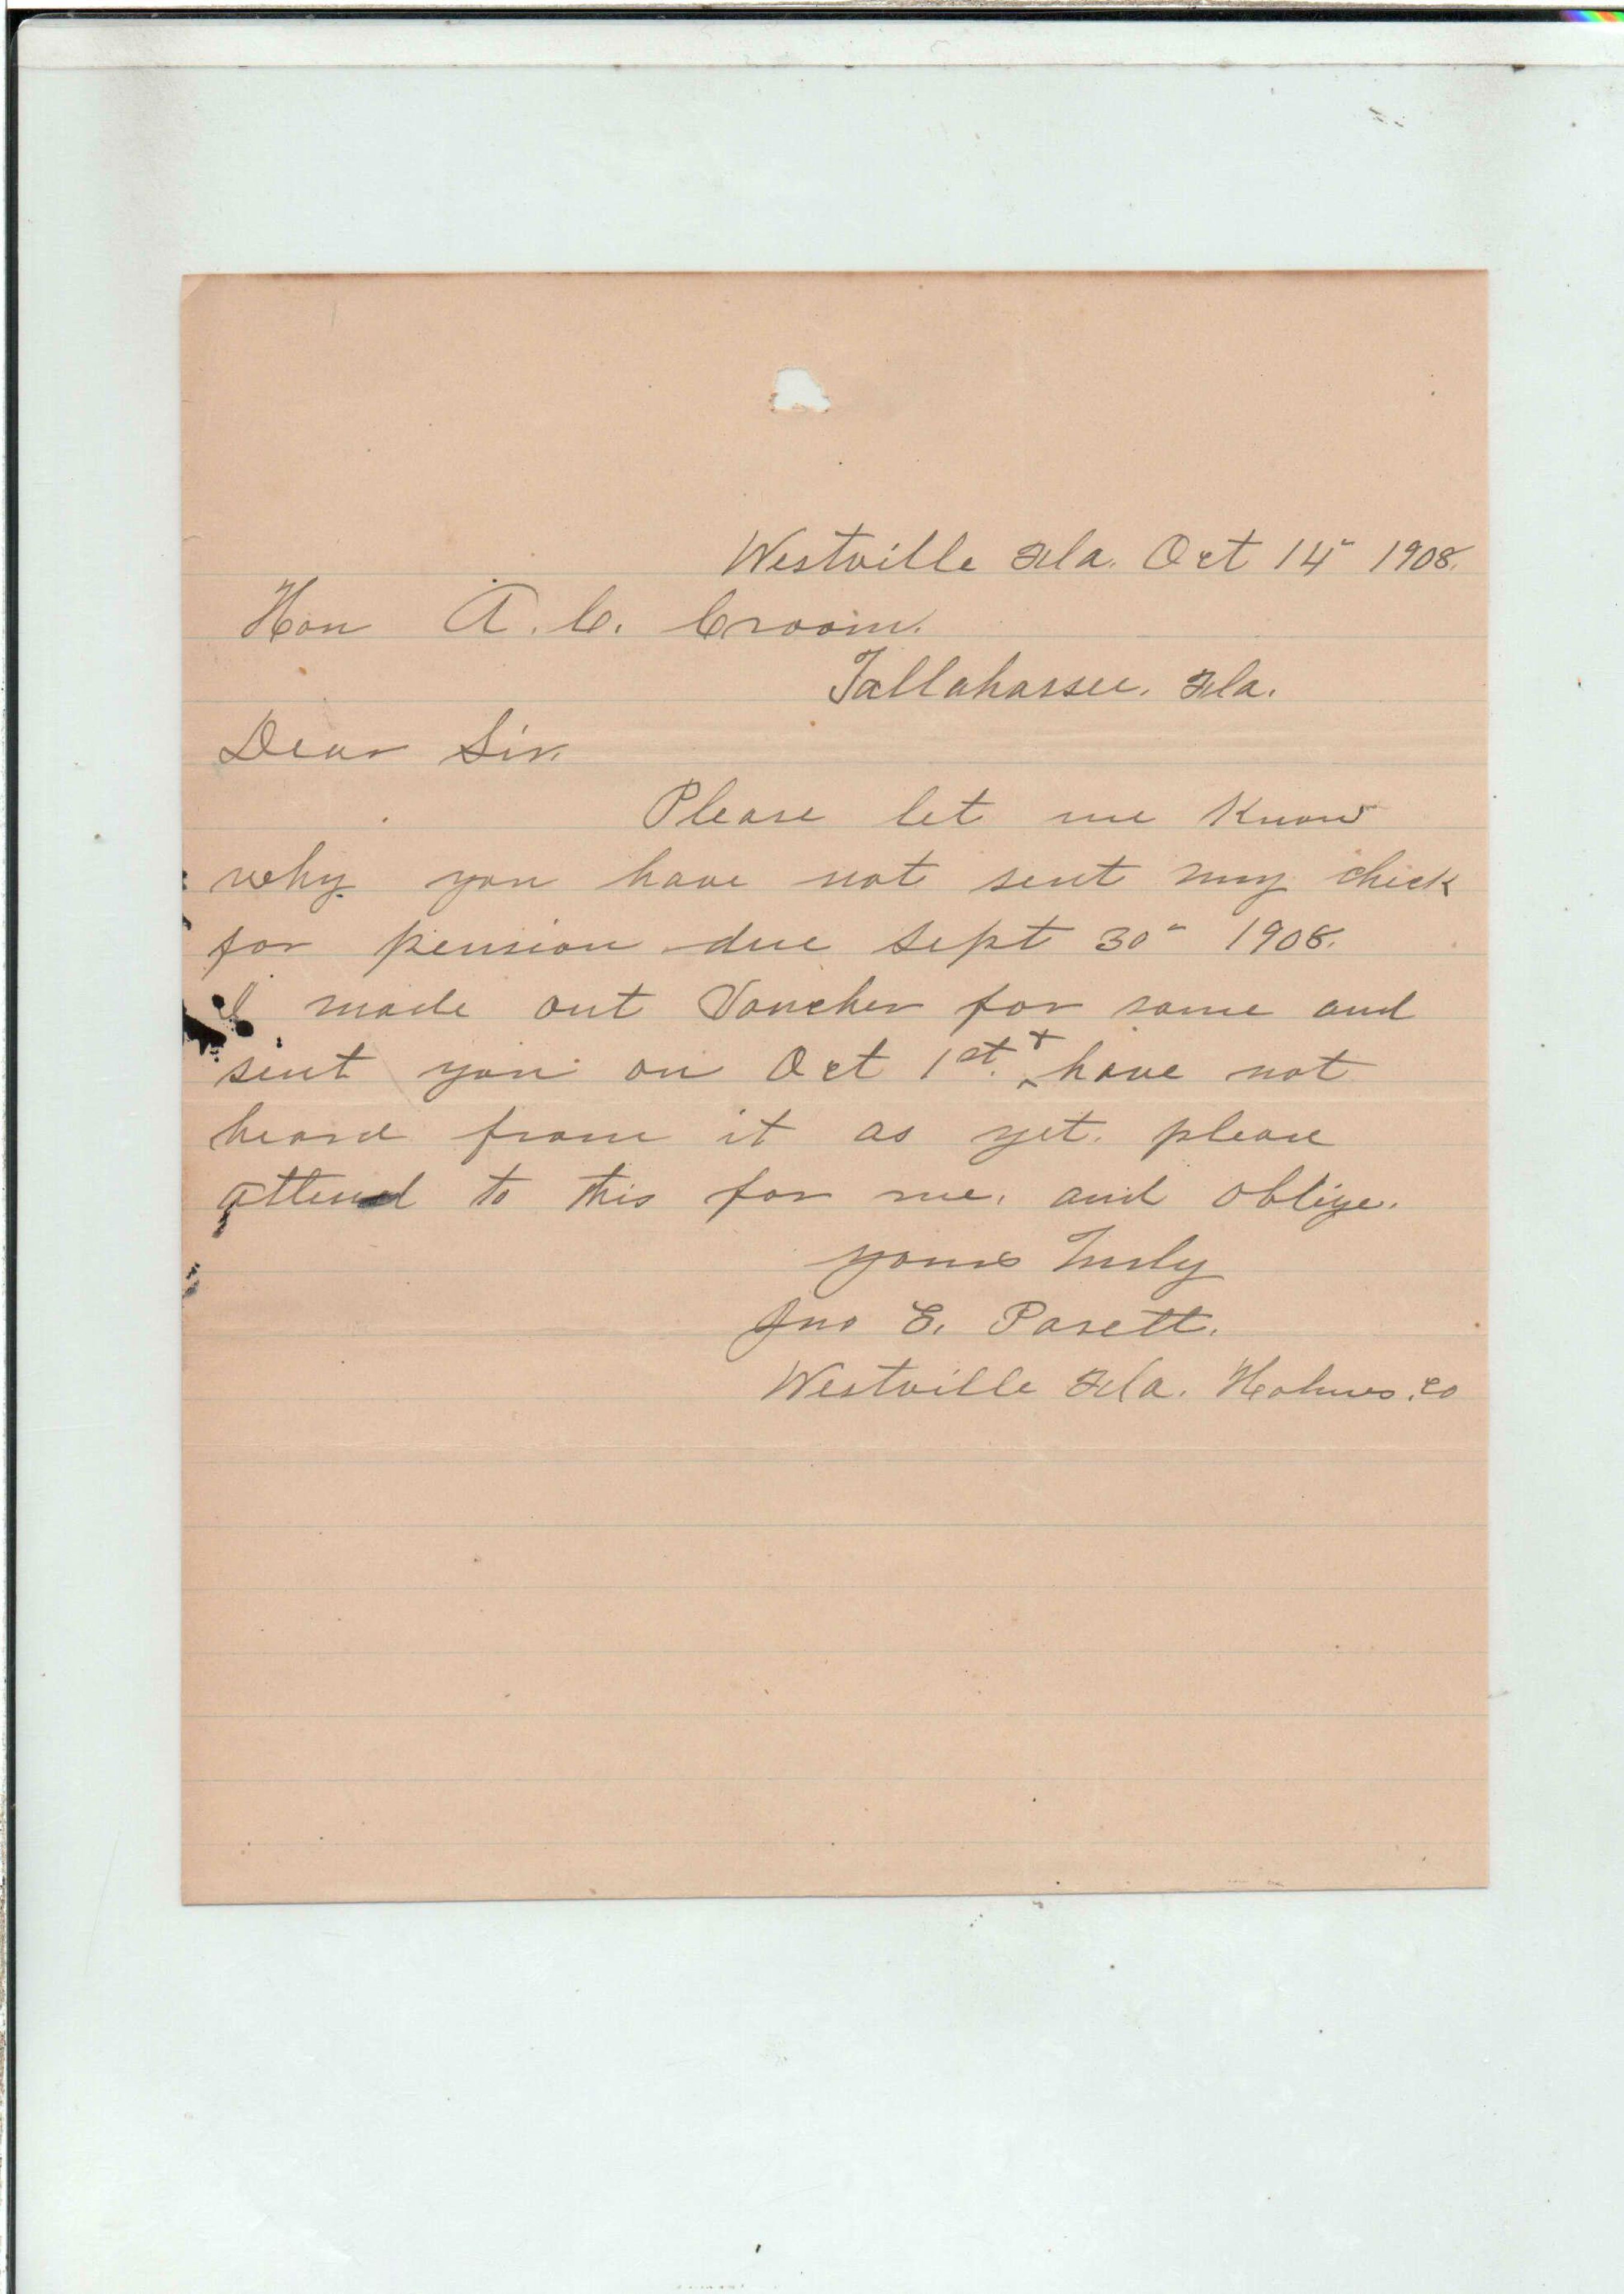 Westville Fla. Oct 14" 1908.
Hon A. C. Croom.
Tallahassee. Fla.
Dear Sir.
Please let me Know
why you have not sent my check
for pension due Sept 30" 1908.
I made out Voucher for same and
sent you on Oct 1st. & have not
heard from it as yet. please
attend to this for me. and oblige.
yours Truly
Jno E. Pasett.
Westville Fla. Holmes. Co